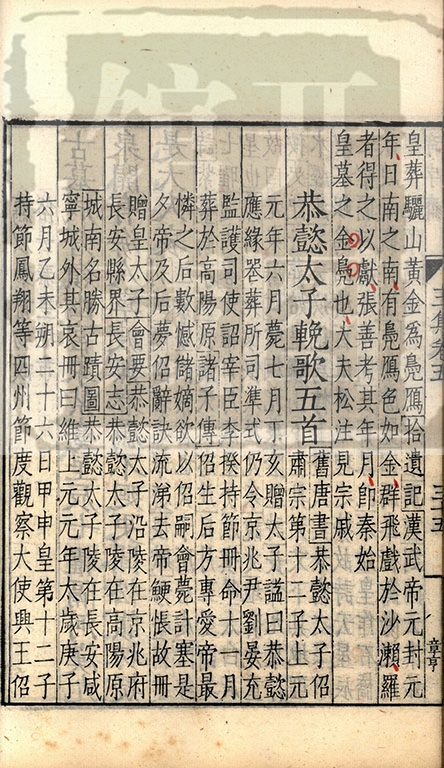 皇葬驪山黃金為鳧鴈拾遺記漢武帝元封元
年日南之南有鳧鴈色如金群飛戲於沙瀨羅
者得之以獻張善考其年月即秦始
皇墓之金鳧也大夫松注見宗戚
恭懿太子輓歌五首舊唐書恭懿太子佋
肅宗第十二子上元
元年六月薨七月丁亥贈太子諡曰恭懿
應緣器葬所司準式仍令京兆尹劉晏充
監護司使詔宰臣李揆持節冊命十一月
葬於高陽原諸子傳佋生后方專愛帝最
憐之后數憾儲嫡欲以佋嗣會薨計塞是
夕帝及后夢佋辭訣流涕去帝鯁悵故冊
贈皇太子會要恭懿太子沿陵在京兆府
長安縣界長安志恭懿太子陵在高陽原
城南名勝古蹟圖恭懿太子陵在長安咸
寧城外其哀冊曰維上元元年太歲庚子
六月乙未朔二十六日甲申皇第十二子
持節鳳翔等四州節度觀察大使興王佋
三十五
章亨